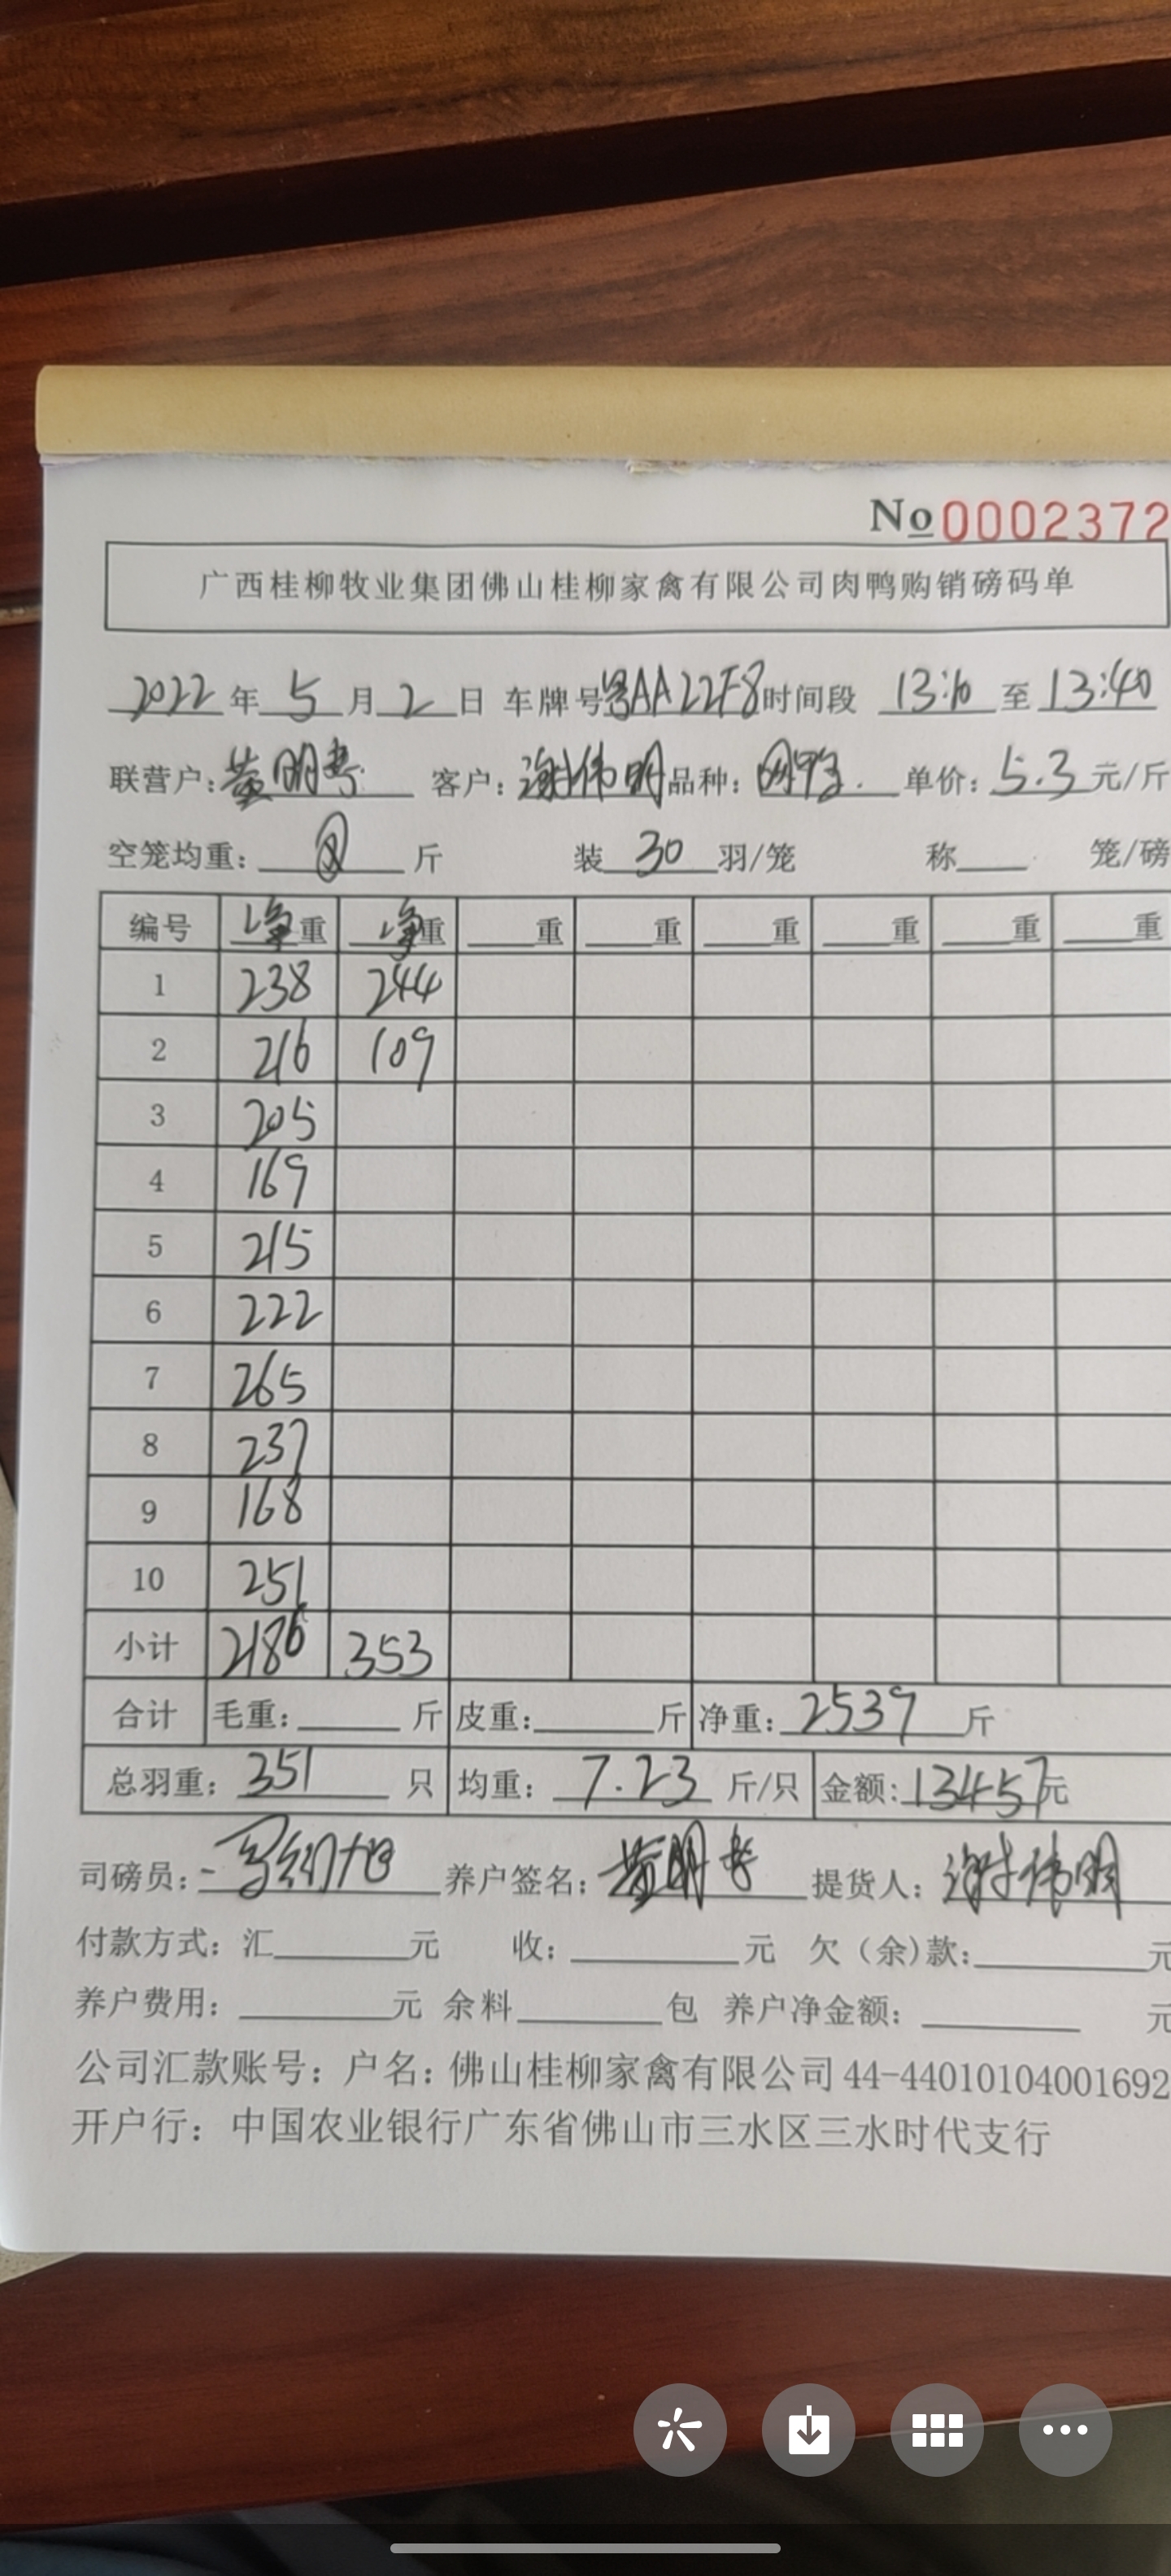 No 0002372
广西桂柳牧业集团佛山桂柳家禽有限公司肉鸭购销磅码单
2022年5月2日 车牌号粤AA22F8时间段 13:10 至 13:40
联营户:黄明寿 客户:谢伟明 品种: 单价:5.3元/斤
空笼均重: 斤 装30羽/笼 称 笼/磅
编号 净重 净重 重 重 重 重 重 重
1 238 244
2 216 109
3 205
4 169
5 215
6 222
7 265
8 237
9 168
10 251
小计 2186 353
合计 毛重: 斤 皮重: 斤 净重:2539斤
总羽重:351只 均重:7.23斤/只 金额:13457元
司磅员: 养户签名:黄明寿 提货人:谢伟明
付款方式:汇 元 收: 元 欠(余)款: 元
养户费用: 元 余料 包 养户净金额: 元
公司汇款账号:户名:佛山桂柳家禽有限公司 44-44010104001692
开户行:中国农业银行广东省佛山市三水区三水时代支行